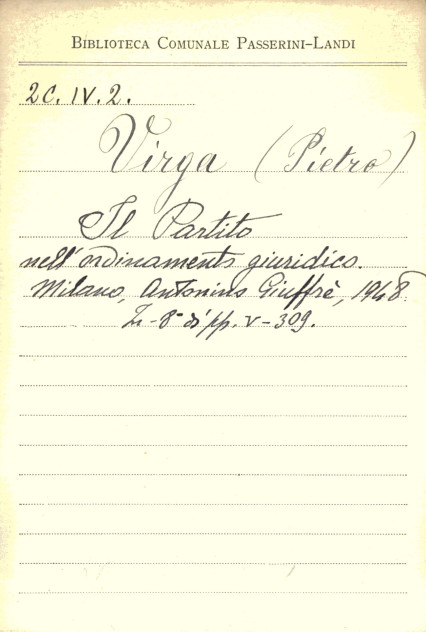 BIBLIOTECA COMUNALE PASSERINI-LANDI
2C. IV. 2.
Virga (Pietro)
Il Partito
nell'ordinamento giuridico.
Milano, Antonino Giuffrè, 1948.
In-8° di pp. V-309.